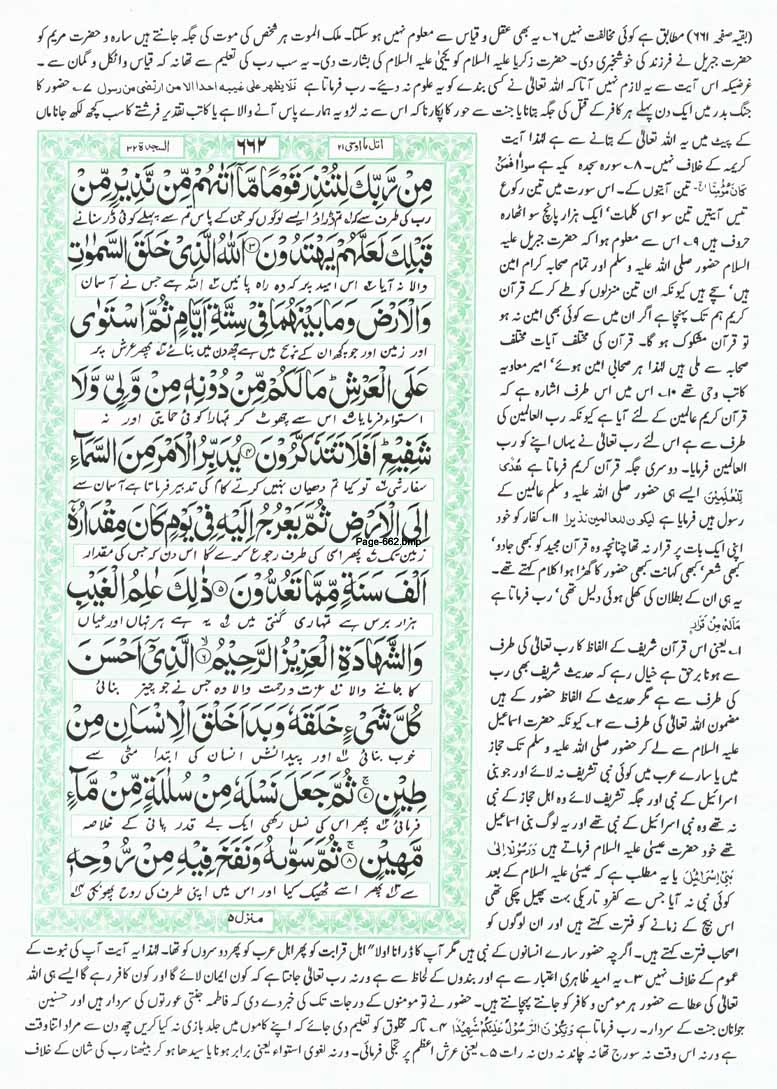 (بقیہ صفحہ ۶۶۱) مطابق ہے کوئی مخالفت نہیں ۶؎ یہ بھی عقل و قیاس سے معلوم نہیں ہو سکتا۔ ملک الموت ہر شخص کی موت کی جگہ جانتے ہیں سارہ و حضرت مریم کو
حضرت جبریل نے فرزند کی خوشخبری دی۔ حضرت زکریا علیہ السلام کو یحییٰ علیہ السلام کی بشارت دی۔ یہ سب رب کی تعلیم سے تھا نہ کہ قیاس و اٹکل و گمان سے۔
غرضیکہ اس آیت سے یہ لازم نہیں آتا کہ اللہ تعالیٰ نے کسی بندے کو یہ علوم نہ دیئے۔ رب فرماتا ہے فلا یظہر علی غیبہ احدا الا من ارتضی من رسول ۷؎ حضور کا
جنگ بدر میں ایک دن پہلے ہر کافر کے قتل کی جگہ بتانا یا جنت سے حور کا پکارنا کہ اس سے نہ لڑو یہ ہمارے پاس آنے والا ہے یا کاتب تقدیر فرشتے کا سب کچھ لکھ جانا ماں
کے پیٹ میں یہ اللہ تعالیٰ کے بتانے سے ہے لہٰذا آیت
کریمہ کے خلاف نہیں۔ ۸؎ سورہ سجدہ مکیہ ہے سوا اَفَمَنْ
كَانَ مُؤْمِنًا الخ تین آیتوں کے۔ اس سورت میں تین رکوع
تیس آیتیں تین سو اسی کلمات، ایک ہزار پانچ سو اٹھارہ
حروف ہیں ۹؎ اس سے معلوم ہوا کہ حضرت جبریل علیہ
السلام حضور صلی اللہ علیہ وسلم اور تمام صحابہ کرام امین
ہیں، سچے ہیں کیونکہ ان تین منزلوں کو طے کر کے قرآن
کریم ہم تک پہنچا ہے اگر ان میں سے کوئی بھی امین نہ ہو
تو قرآن مشکوک ہو گا۔ قرآن کی مختلف آیات مختلف
صحابہ سے ملی ہیں لہٰذا ہر صحابی امین ہوئے، امیر معاویہ
کاتب وحی تھے ۱۰؎ اس میں اس طرف اشارہ ہے کہ
قرآن کریم عالمین کے لئے آیا ہے کیونکہ رب العالمین کی
طرف سے ہے اس لئے رب تعالیٰ نے یہاں اپنے کو رب
العالمین فرمایا۔ دوسری جگہ قرآن کریم فرماتا ہے هُدًى
لِّلْعٰلَمِيْنَ ایسے ہی حضور صلی اللہ علیہ وسلم عالمین کے
رسول ہیں فرمایا ہے لیکون للعالمین نذیرا ۱۱؎ کفار کو خود
اپنی ایک بات پر قرار نہ تھا چنانچہ وہ قرآن مجید کو بھی جادو،
کبھی شعر، کبھی کہانت کبھی حضور کا گھڑا ہوا کلام کہتے تھے۔
یہ ہی ان کے بطلان کی کھلی ہوئی دلیل تھی، رب فرماتا ہے
۱؎ یعنی اس قرآن شریف کے الفاظ کا رب تعالیٰ کی طرف
سے ہونا برحق ہے خیال رہے کہ حدیث شریف بھی رب
کی طرف سے ہے مگر حدیث کے الفاظ حضور کے ہیں
مضمون اللہ تعالیٰ کی طرف سے ۲؎ کیونکہ حضرت اسماعیل
علیہ السلام سے لے کر حضور صلی اللہ علیہ وسلم تک حجاز
میں یا سارے عرب میں کوئی نبی تشریف نہ لائے اور جو بنی
اسرائیل کے نبی اور جگہ تشریف لائے وہ اہل حجاز کے نبی
نہ تھے وہ نبی اسرائیل کے نبی تھے اور یہ لوگ بنی اسماعیل
تھے خود حضرت عیسیٰ علیہ السلام فرماتے ہیں وَرَسُوْلًا اِلٰى
بَنِيْ اِسْرَآءِيْلَ یا یہ مطلب ہے کہ عیسیٰ علیہ السلام کے بعد
کوئی نبی نہ آیا جس سے کفر و تاریکی بہت پھیل چکی تھی
اس بیچ کے زمانے کو فترت کہتے ہیں اور ان لوگوں کو
اتل ما اوحی ۲۱
۶۶۲
السجدة ۳۲
مِنْ رَّبِّكَ لِتُنْذِرَ قَوْمًا مَّآ اَتٰىهُمْ مِّنْ نَّذِيْرٍ مِّنْ
رب کی طرف سے کہ تم ڈراؤ ایسے لوگوں کو جن کے پاس تم سے پہلے کوئی ڈر سنانے
قَبْلِكَ لَعَلَّهُمْ يَهْتَدُوْنَ ۳ اَللّٰهُ الَّذِيْ خَلَقَ السَّمٰوٰتِ
والا نہ آیا اس امید پر کہ وہ راہ پائیں اللہ ہے جس نے آسمان
وَالْاَرْضَ وَمَا بَيْنَهُمَا فِيْ سِتَّةِ اَيَّامٍ ثُمَّ اسْتَوٰى
اور زمین اور جو کچھ ان کے بیچ میں ہے چھ دن میں بنائے پھر عرش پر
عَلَى الْعَرْشِ مَا لَكُمْ مِّنْ دُوْنِهٖ مِنْ وَّلِيٍّ وَّلَا
استواء فرمایا اس سے چھوٹ کر تمہارا کوئی حمایتی اور نہ
شَفِيْعٍ اَفَلَا تَتَذَكَّرُوْنَ ۴ يُدَبِّرُ الْاَمْرَ مِنَ السَّمَآءِ
سفارشی تو کیا تم دھیان نہیں کرتے کام کی تدبیر فرماتا ہے آسمان سے
اِلَى الْاَرْضِ ثُمَّ يَعْرُجُ اِلَيْهِ فِيْ يَوْمٍ كَانَ مِقْدَارُهٗٓ
Page-662.bmp
زمین تک پھر اسی کی طرف رجوع کرے گا اس دن کہ جس کی مقدار
اَلْفَ سَنَةٍ مِّمَّا تَعُدُّوْنَ ۵ ذٰلِكَ عٰلِمُ الْغَيْبِ
ہزار برس ہے تمہاری گنتی میں یہ ہے ہر نہاں اور عیاں
وَالشَّهَادَةِ الْعَزِيْزُ الرَّحِيْمُ ۶ الَّذِيْٓ اَحْسَنَ
کا جاننے والا عزت و رحمت والا وہ جس نے جو چیز بنائی
كُلَّ شَيْءٍ خَلَقَهٗ وَبَدَاَ خَلْقَ الْاِنْسَانِ مِنْ
خوب بنائی اور پیدائش انسان کی ابتدا مٹی سے
طِيْنٍ ۷ ثُمَّ جَعَلَ نَسْلَهٗ مِنْ سُلٰلَةٍ مِّنْ مَّآءٍ
فرمائی پھر اس کی نسل رکھی ایک بے قدر پانی کے خلاصہ
مَّهِيْنٍ ۸ ثُمَّ سَوّٰىهُ وَنَفَخَ فِيْهِ مِنْ رُّوْحِهٖ
سے پھر اسے ٹھیک کیا اور اس میں اپنی طرف کی روح پھونکی
منزل ۵
اصحاب فترت کہتے ہیں۔ اگرچہ حضور سارے انسانوں کے نبی ہیں مگر آپ کا ڈرانا اولاً اہل قرابت کو پھر اہل عرب کو پھر دوسروں کو تھا۔ لہٰذا یہ آیت آپ کی نبوت کے
عموم کے خلاف نہیں ۳؎ یہ امید ظاہری اعتبار سے ہے اور بندوں کے لحاظ سے ہے ورنہ رب تعالیٰ جانتا ہے کہ کون ایمان لائے گا اور کون کافر رہے گا ایسے ہی اللہ
تعالیٰ کی عطا سے حضور ہر مومن و کافر کو جانتے پہچانتے ہیں۔ حضور نے تو مومنوں کے درجات تک کی خبر دے دی کہ فاطمہ جنتی عورتوں کی سردار ہیں اور حسنین
جوانان جنت کے سردار۔ رب فرماتا ہے وَيَكُوْنَ الرَّسُوْلُ عَلَيْكُمْ شَهِيْدًا ۴؎ تاکہ مخلوق کو تعلیم دی جائے کہ اپنے کاموں میں جلد بازی نہ کیا کریں چھ دن سے مراد اتنا وقت
ہے ورنہ اس وقت نہ سورج تھا نہ چاند نہ دن نہ رات ۵؎ یعنی عرش اعظم پر تجلی فرمائی۔ ورنہ لغوی استواء یعنی برابر ہونا یا سیدھا ہو کر بیٹھنا رب کی شان کے خلاف